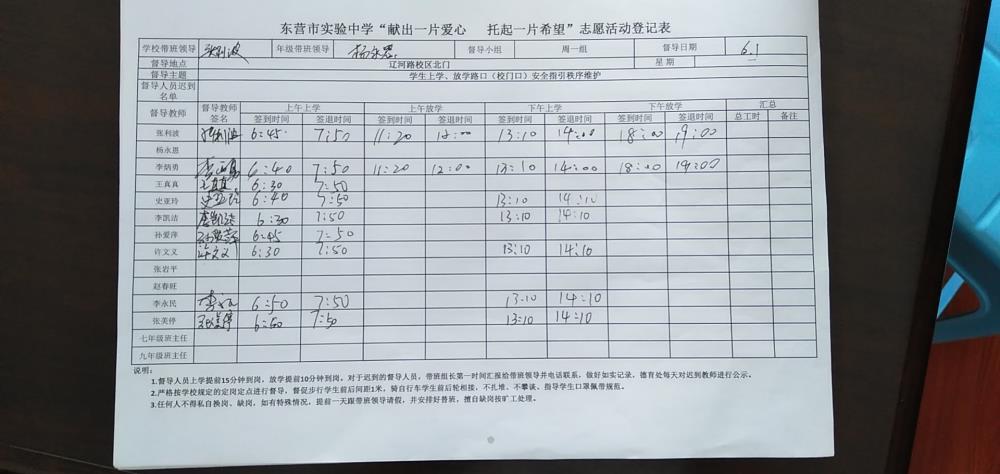 东营市实验中学“献出一片爱心 托起一片希望”志愿活动登记表
学校带班领导 张利波 年级带班领导 杨永恩 督导小组 周一组 督导日期 6.1
督导地点 辽河路校区北门 星期
督导主题 学生上学、放学路口（校门口）安全指引秩序维护
督导人员迟到名单
督导教师 督导教师签名 上午上学 上午放学 下午上学 下午放学 汇总
签到时间 签退时间 签到时间 签退时间 签到时间 签退时间 签到时间 签退时间 总工时 备注
张利波 张利波 6:45 7:50 11:20 12:00 13:10 14:00 18:00 19:00
杨永恩
李炳勇 李炳勇 6:40 7:50 11:20 12:00 13:10 14:00 18:00 19:00
王真真 王真真 6:30 7:50
史亚玲 史亚玲 6:40 7:50 13:10 14:10
李凯洁 李凯洁 6:30 7:50 13:10 14:10
孙爱萍 孙爱萍 6:45 7:50
许文义 许文义 6:30 7:50 13:10 14:10
张岩平
赵春旺
李永民 6:50 7:50 13:10 14:10
张美停 张美停 6:50 7:50 13:10 14:10
七年级班主任
九年级班主任
说明：
1.督导人员上学提前15分钟到岗，放学提前10分钟到岗，对于迟到的督导人员，带班组长第一时间汇报给带班领导并电话联系，做好如实记录，德育处每天对迟到教师进行公示。
2.严格按学校规定的定岗定点进行督导，督促步行学生前后间距1米，骑自行车学生前后轮相接，不扎堆、不攀谈、指导学生口罩佩带规范。
3.任何人不得私自换岗、缺岗，如有特殊情况，提前一天跟带班领导请假，并安排好替班，擅自缺岗按旷工处理。